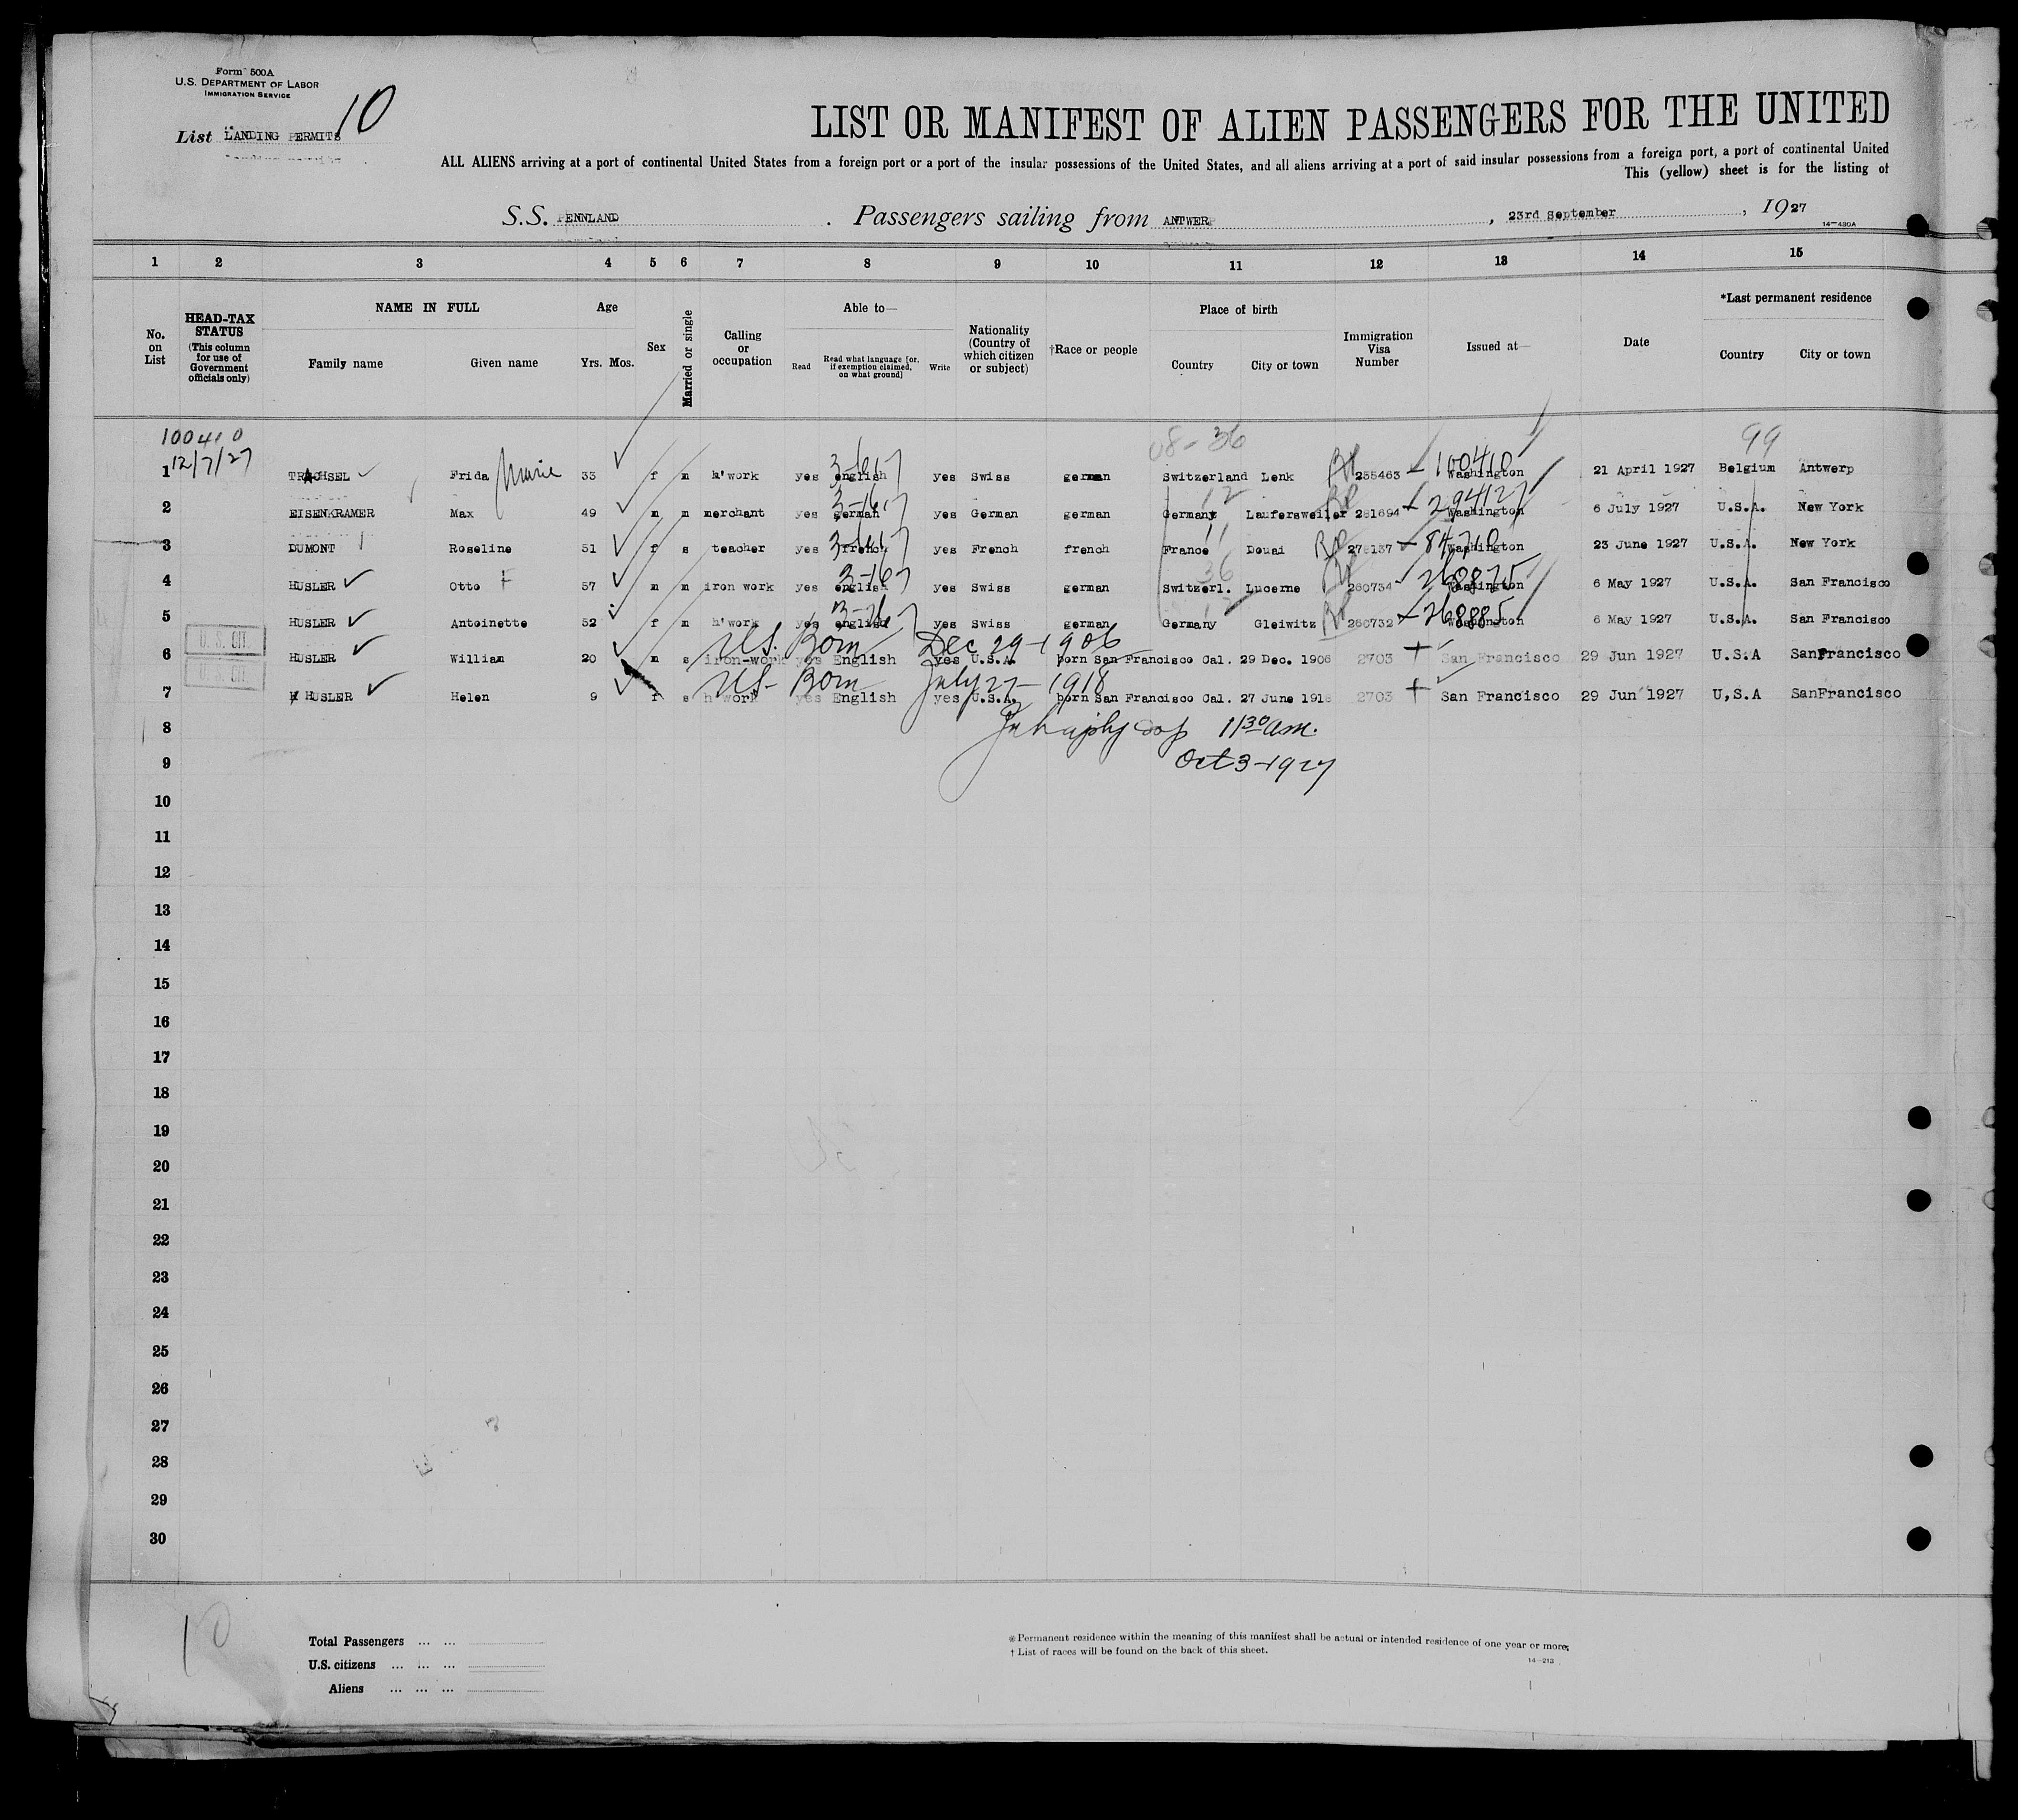 Form 500A
U.S. DEPARTMENT OF LABOR
IMMIGRATION SERVICE
10
List LANDING PERMITS
LIST OR MANIFEST OF ALIEN PASSENGERS FOR THE UNITED
ALL ALIENS arriving at a port of continental United States from a foreign port or a port of the insular possessions of the United States, and all aliens arriving at a port of said insular possessions from a foreign port, a port of continental United
This (yellow) sheet is for the listing of
S.S. PENNLAND . Passengers sailing from ANTWERP , 23rd September , 1927
14—430A
1 2 3 4 5 6 7 8 9 10 11 12 13 14 15
No. on List HEAD-TAX STATUS (This column for use of Government officials only) NAME IN FULL Family name Given name Age Yrs. Mos. Sex Married or single Calling or occupation Able to— Read Read what language [or, if exemption claimed, on what ground] Write Nationality (Country of which citizen or subject) †Race or people Place of birth Country City or town Immigration Visa Number Issued at— Date *Last permanent residence Country City or town
100410 08-36 99
12/7/27
1 TRACHSEL Frida Marie 33 f m h'work yes english yes Swiss german Switzerland Lenk 235463 - 100410 Washington 21 April 1927 Belgium Antwerp
2 EISENKRAMER Max 49 m m merchant yes german yes German german Germany Laufersweiler 281694 Washington 6 July 1927 U.S.A. New York
3 DUMONT Roseline 51 f s teacher yes french yes French french France Douai Washington 23 June 1927 U.S.A. New York
4 HUSLER Otto F 57 m m iron work yes english yes Swiss german Switzerl. Lucerne 260734 Washington 6 May 1927 U.S.A. San Francisco
5 HUSLER Antoinette 52 f m h'work yes english yes Swiss german Germany Gleiwitz 260732 - 268885 Washington 6 May 1927 U.S.A. San Francisco
U. S. CIT. U.S. Born Dec 29-1906
6 HUSLER William 20 m s iron-work yes English yes U.S.A. born San Francisco Cal. 29 Dec. 1906 2703 San Francisco 29 Jun 1927 U.S.A SanFrancisco
U. S. CIT. U.S. Born July 27-1918
7 HUSLER Helen 9 f s h'work yes English yes U.S.A. born San Francisco Cal. 27 June 1918 2703 San Francisco 29 Jun 1927 U,S.A SanFrancisco
8 11 30 am.
9 Oct 3-1927
10
11
12
13
14
15
16
17
18
19
20
21
22
23
24
25
26
27
28
29
30
10
Total Passengers ... ...
U.S. citizens ... ... ...
Aliens ... ... ...
*Permanent residence within the meaning of this manifest shall be actual or intended residence of one year or more.
† List of races will be found on the back of this sheet.
14—213